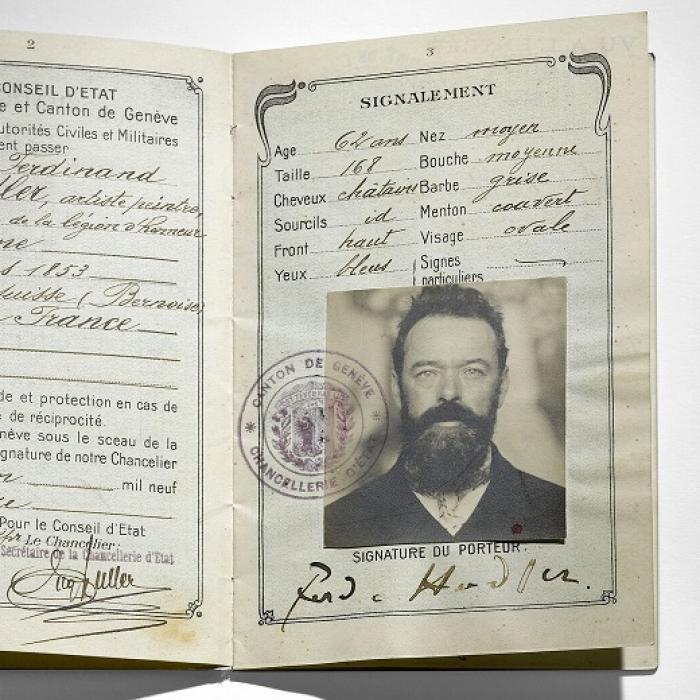 2
CONSEIL D'ETAT
e et Canton de Genève
utorités Civiles et Militaires
ent passer
Ferdinand
ler, artiste peintre,
de la légion d'honneur
1853
Suisse (Bernoise)
France
de et protection en cas de
de réciprocité.
nève sous le sceau de la
ignature de notre Chancelier
mil neuf
Pour le Conseil d'Etat
Le Chancelier:
Secrétaire de la Chancellerie d'Etat
3
SIGNALEMENT
Age 62 ans
Taille 168
Cheveux châtains
Sourcils id
Front haut
Yeux bleus
Nez moyen
Bouche moyenne
Barbe grise
Menton couvert
Visage ovale
Signes
particuliers
CANTON DE GENÈVE
CHANCELLERIE D'ÉTAT
SIGNATURE DU PORTEUR:
Ferd. Hodler.